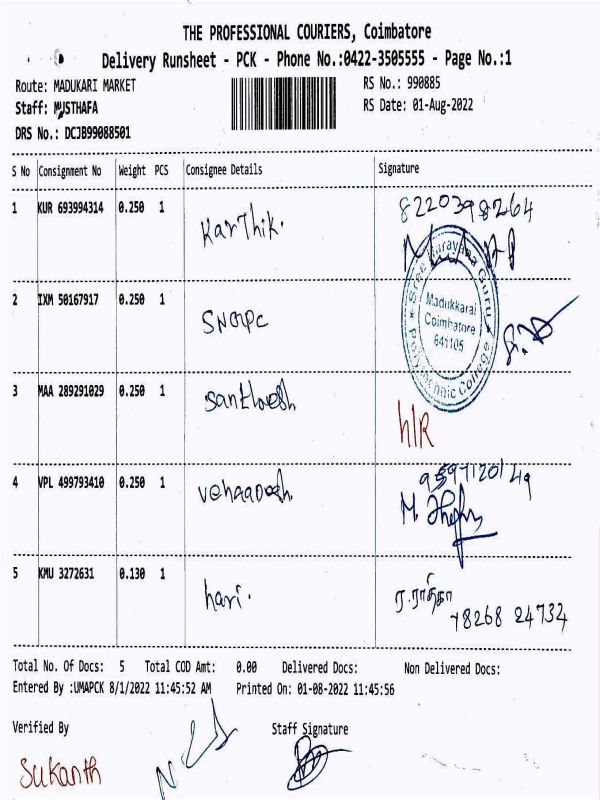 THE PROFESSIONAL COURIERS, Coimbatore
Delivery Runsheet - PCK - Phone No.:0422-3505555 - Page No.:1
Route: MADUKARI MARKET RS No.: 990885
Staff: MUSTHAFA RS Date: 01-Aug-2022
DRS No.: DCJB99088501
S No Consignment No Weight PCS Consignee Details Signature
1 KUR 693994314 0.250 1 Karthik. 8220398264
2 IXM 50167917 0.250 1 SNGPC
Sree Narayana Guru Polytechnic College
Madukkarai
Coimbatore
641105
3 MAA 289291029 0.250 1 santhosh h/R
4 VPL 499793410 0.250 1
5 KMU 3272631 0.130 1 hari. ர.ராதிகா
78268 24734
Total No. Of Docs: 5 Total COD Amt: 0.00 Delivered Docs: Non Delivered Docs:
Entered By :UMAPCK 8/1/2022 11:45:52 AM Printed On: 01-08-2022 11:45:56
Verified By Staff Signature
Sukanth